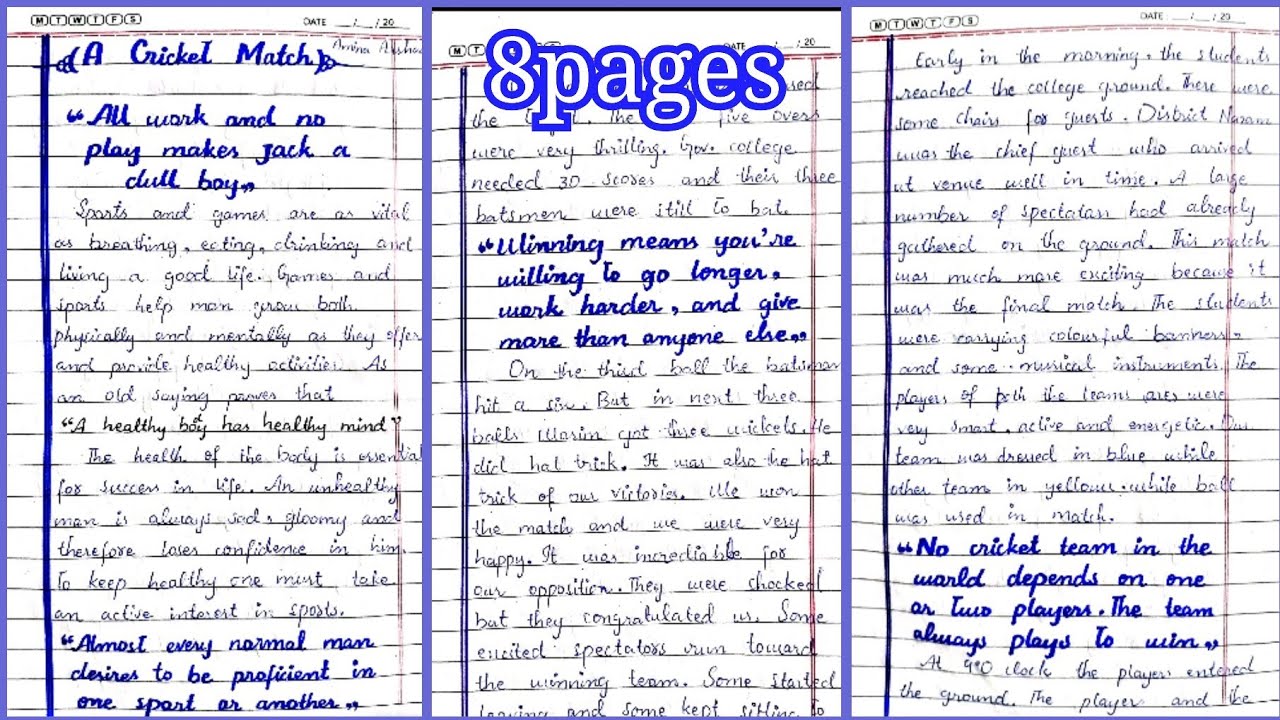 M T W T F S
DATE __/__/20
Amina
(A Cricket Match)
“All work and no
play makes Jack a
dull boy„
Sports and games are as vital
as breathing, eating, drinking and
living a good life. Games and
sports help man grow both
physically and mentally as they offer
and provide healthy activities. As
an old saying proves that
“A healthy body has healthy mind”
The health of the body is essential
for success in life. An unhealthy
man is always sad, gloomy and
therefore loses confidence in him.
To keep healthy one must take
an active interest in sports.
“Almost every normal man
desires to be proficient in
one sport or another„
M T
DATE __/__/20
8pages
the The five overs
were very thrilling. Gov. college
needed 30 scores and their three
batsmen were still to bat.
“Winning means you're
willing to go longer,
work harder, and give
more than anyone else„
On the third ball the batsman
hit a six. But in next three
balls Wasim got three wickets. He
did hat trick. It was also the hat
trick of our victories. We won
the match and we were very
happy. It was incrediable for
our opposition. They were shocked
but they congratulated us. Some
excited spectators run toward
the winning team. Some started
leaving and some kept sitting to
M T W T F S
DATE __/__/20
Early in the morning, the students
reached the college ground. There were
some chairs for guests. District Nazam
was the chief guest who arrived
at venue well in time. A large
number of spectators had already
gathered on the ground. This match
was much more exciting because it
was the final match. The students
were carrying colourful banners,
and some musical instruments. The
players of both the teams were
very smart, active and energetic. Our
team was dressed in blue while
other team in yellow. while ball
was used in match.
“No cricket team in the
world depends on one
or two players. The team
always plays to win„
At 9'0 clock the players entered
the ground. The player and the